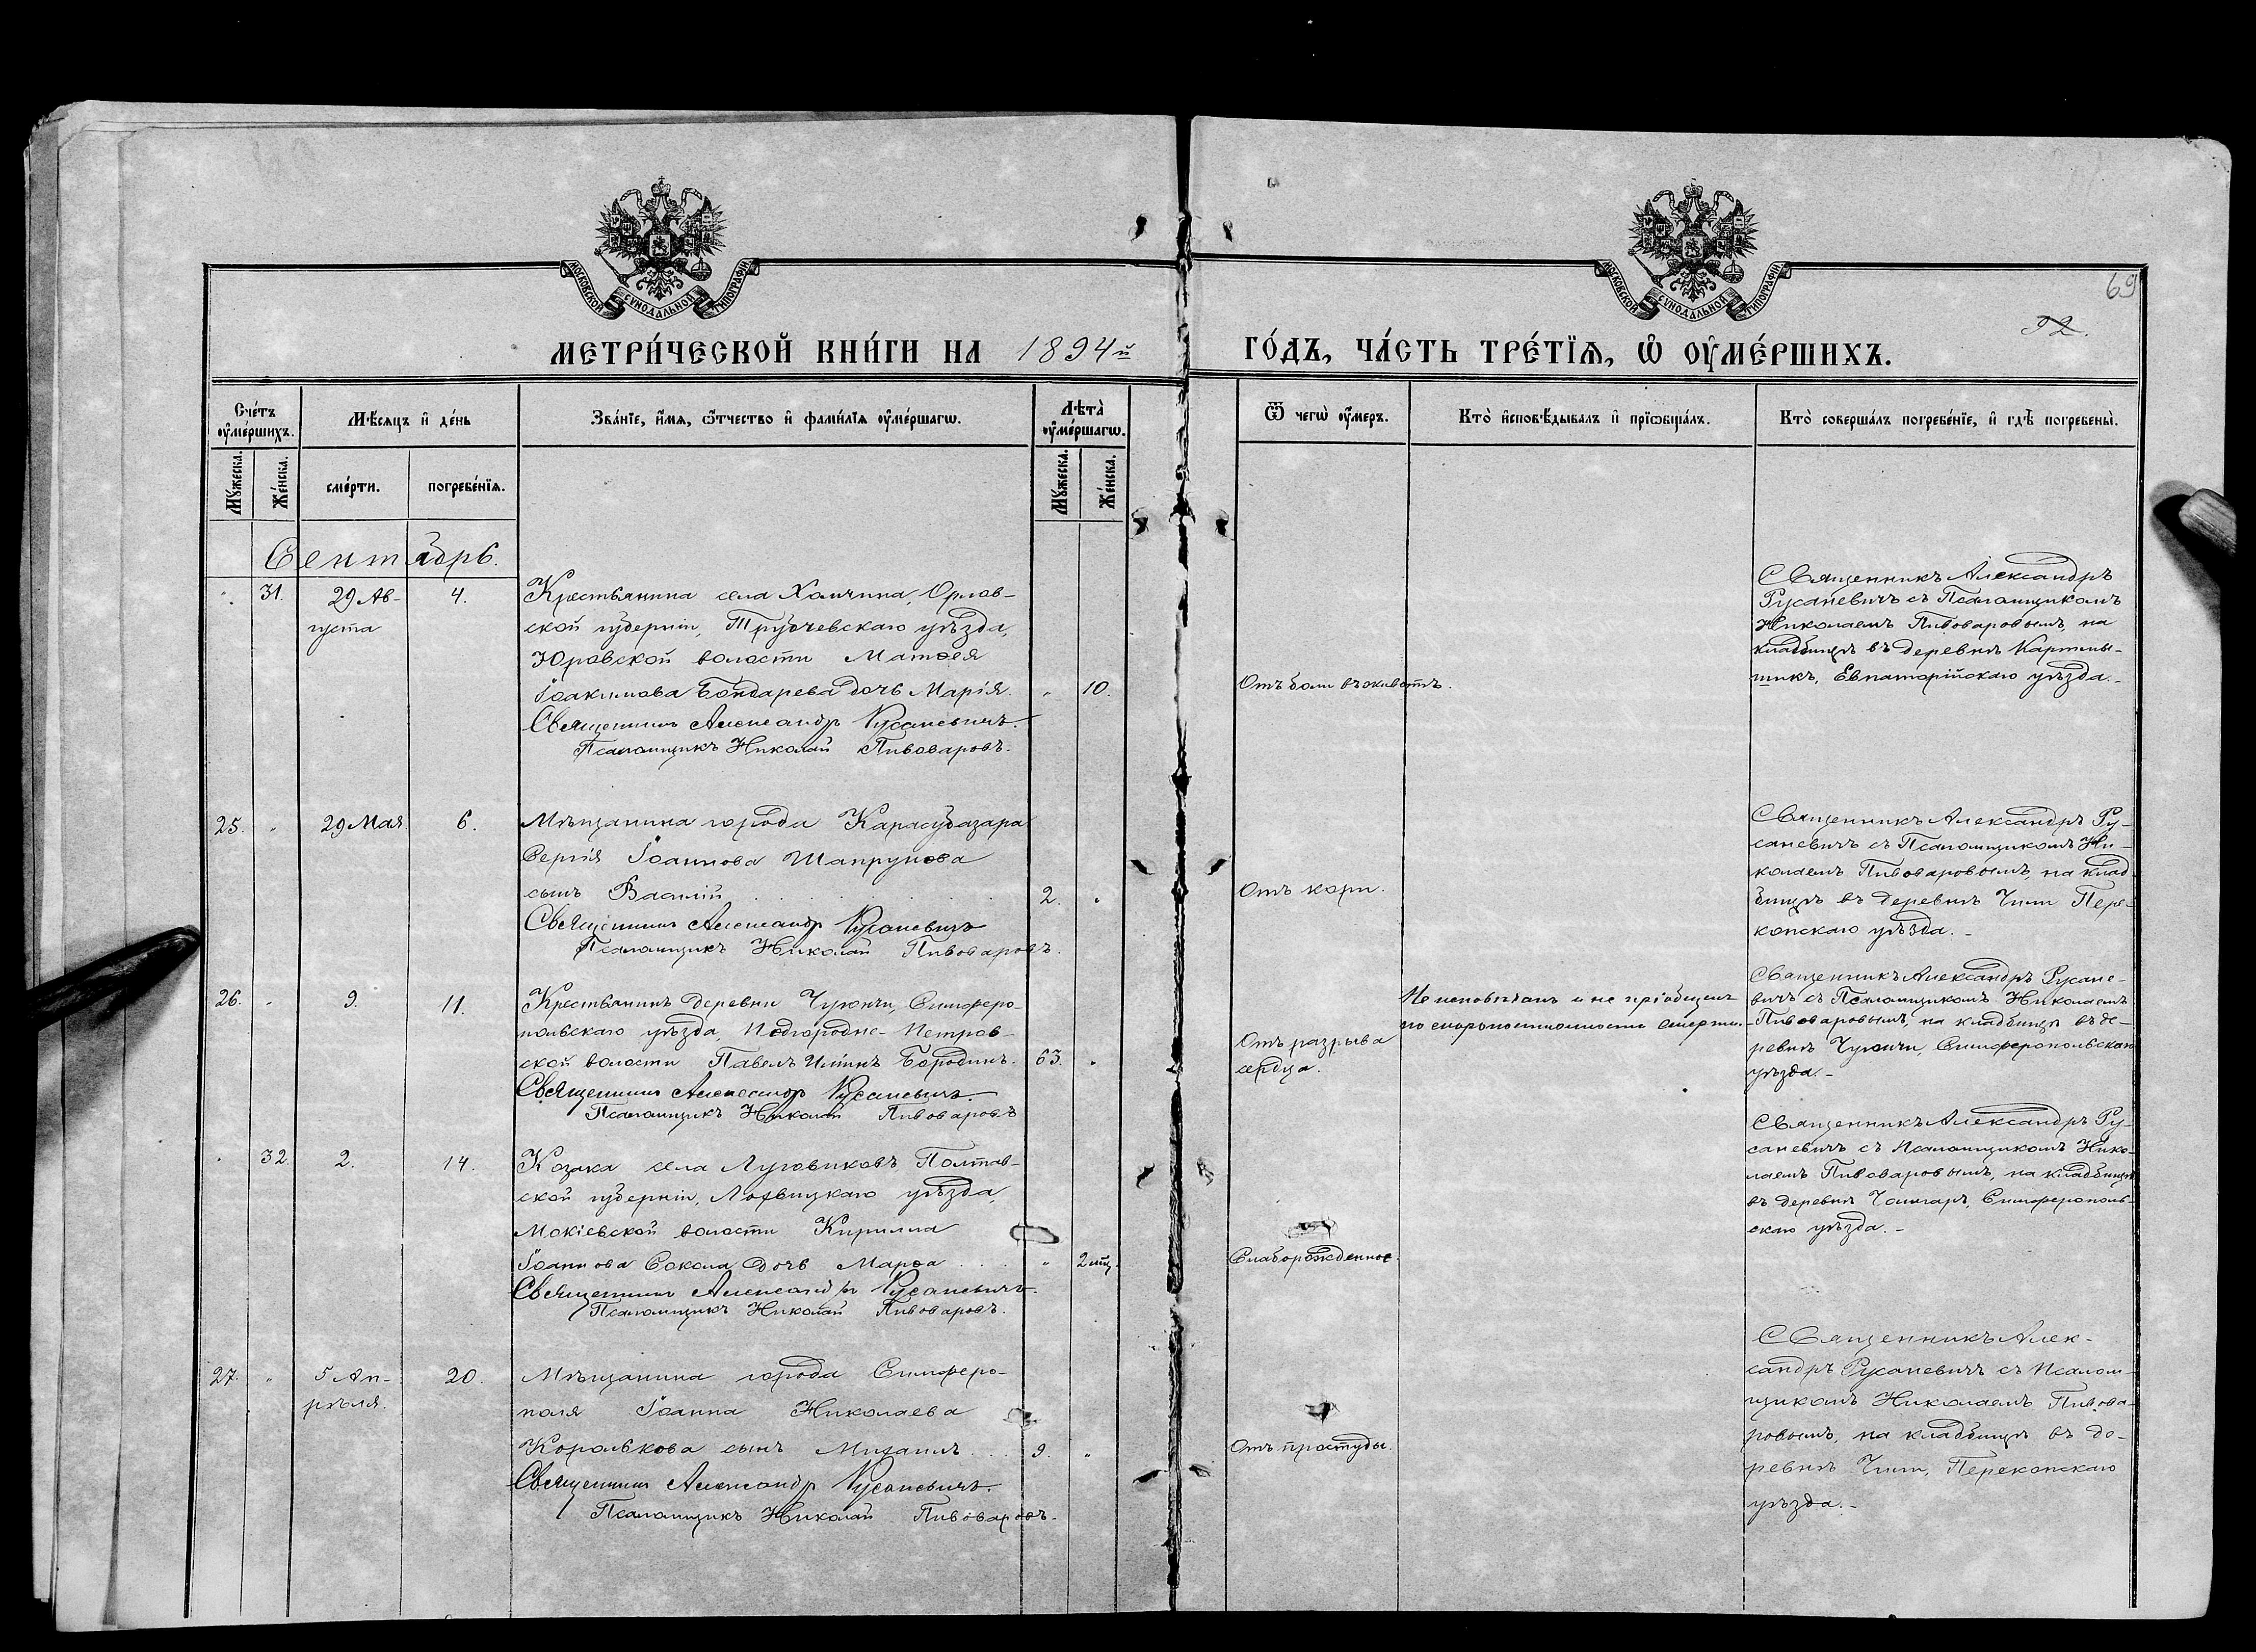 МОСКОВСКОЙ СѴНОДАЛЬНОЙ ТИПОГРАФІИ
МОСКОВСКОЙ СѴНОДАЛЬНОЙ ТИПОГРАФІИ
69
92.
МЕТРИ́ЧЕСКОЙ КНИ́ГИ НА 1894й
ГО́ДЪ, ЧА́СТЬ ТРЕ́ТІѦ, Ѡ҆ ОУ҆МЕ́РШИХЪ.
Сче́тъ оу҆ме́ршихъ.
Мѣ́сѧцъ и҆ де́нь
Зва́нїе, и҆́мѧ, ѻ҆́тчество и҆ фами́лїѧ оу҆ме́ршагѡ.
Лѣ́та оу҆ме́ршагѡ.
Ѿ чегѡ̀ оу҆́меръ.
Кто̀ и҆сповѣ́дывалъ и҆ прїѡбща́лъ.
Кто̀ соверша́лъ погребе́нїе, и҆ гдѣ̀ погребены̀.
Мꙋ́жеска.
Же́нска.
сме́рти.
погребе́нїѧ.
Мꙋ́жеска.
Же́нска.
Сентябрь.
31.
29 Ав-
густа
4.
Крестьянина села Хотчина, Орлов-
ской губерніи, Трубчевскаго уѣзда,
Юровской волости Матѳея
Іоакимова Бондарева дочь Марія.
10.
Священникъ Александръ Русаневичъ.
Псаломщикъ Николай Пивоваровъ.
Отъ боли въ животѣ.
Священникъ Александръ
Русаневичъ съ Псаломщикомъ
Николаемъ Пивоваровымъ, на
кладбищѣ въ деревнѣ Картмы-
шикъ, Евпаторійскаго уѣзда.-
25.
29 Мая
6.
Мѣщанина города Карасубазара
Сергія Іоаннова Шапрунова
сынъ Василій
2.
Священникъ Александръ Русаневичъ
Псаломщикъ Николай Пивоваровъ.
Отъ кори.
Священникъ Александръ Ру-
саневичъ съ Псаломщикомъ Ни-
колаемъ Пивоваровымъ, на клад-
бищѣ въ деревнѣ Чити Пере-
копскаго уѣзда.-
26.
9.
11.
Крестьянинъ деревни Чуюнчи, Симферо-
польскаго уѣзда, Подгородне-Петров-
ской волости Павелъ Ильинъ Бородинъ.
63.
Священникъ Александръ Русаневичъ.
Псаломщикъ Николай Пивоваровъ
Отъ разрыва
сердца.
Не исповѣданъ и не пріобщенъ
по скоропостижности смерти.
Священникъ Александръ Русане-
вичъ съ Псаломщикомъ Николаемъ
Пивоваровымъ, на кладбищѣ въ де-
ревнѣ Чуюнчи, Симферопольскаго
уѣзда.-
32
2.
14.
Козака села Луговиковъ Полтав-
ской губерніи, Лохвицкаго уѣзда,
Мокіевской волости Кирилла
Іоаннова Сокола дочь Марѳа
2 мѣс.
Священникъ Александръ Русаневичъ.
Псаломщикъ Николай Пивоваровъ.
Слаборожденное.
Священникъ Александръ Ру-
саневичъ съ Псаломщикомъ Нико-
лаемъ Пивоваровымъ, на кладбищѣ
въ деревнѣ Чонгаръ, Симферополь-
скаго уѣзда.-
27.
5 Ап-
рѣля.
20.
Мѣщанина города Симферо-
поля Іоанна Николаева
Королькова сынъ Михаилъ
9.
Священникъ Александръ Русаневичъ.
Псаломщикъ Николай Пивоваровъ.
Отъ простуды.
Священникъ Алек-
сандръ Русаневичъ съ Псалом-
щикомъ Николаемъ Пивова-
ровымъ, на кладбищѣ въ де-
ревнѣ Чити, Перекопскаго
уѣзда.-